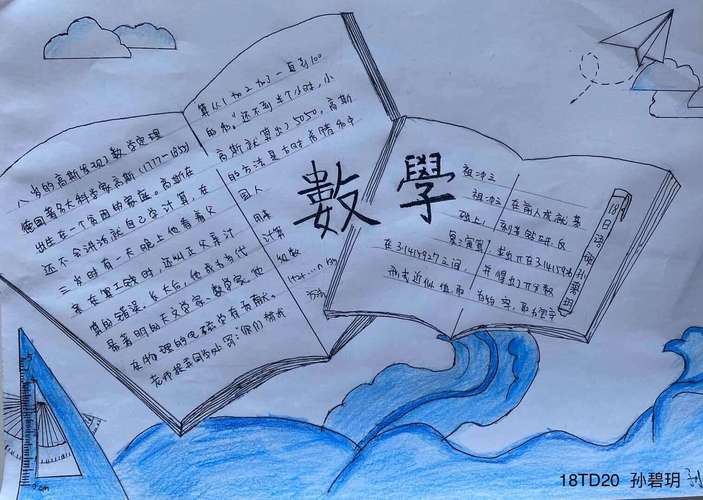 數學
八岁的高斯发现了数学定理
德国著名大科学家高斯(1777-1855)
出生在一个贫困的家庭。高斯在
还不会讲话就自己学计算,在
三岁时有一天晚上他看着父
亲在算工钱时,还纠正父亲计
算的错误。长大后,他成为当代
最著明的天文学家、数学家。他
在物理的
老师
算从1加2加3一直到100
的和。"还不到半个小时,小
高斯就算出了5050,高斯
的方法是
国人
用来
计算
级数
1+2+...+n的
方法
祖冲之
祖冲之在前人成就基
础上,刻苦钻研,反
复演算,求出π在3.1415926
在3.1415927之间,并得出了π分数
形式近似值,
18TD20 孙碧玥